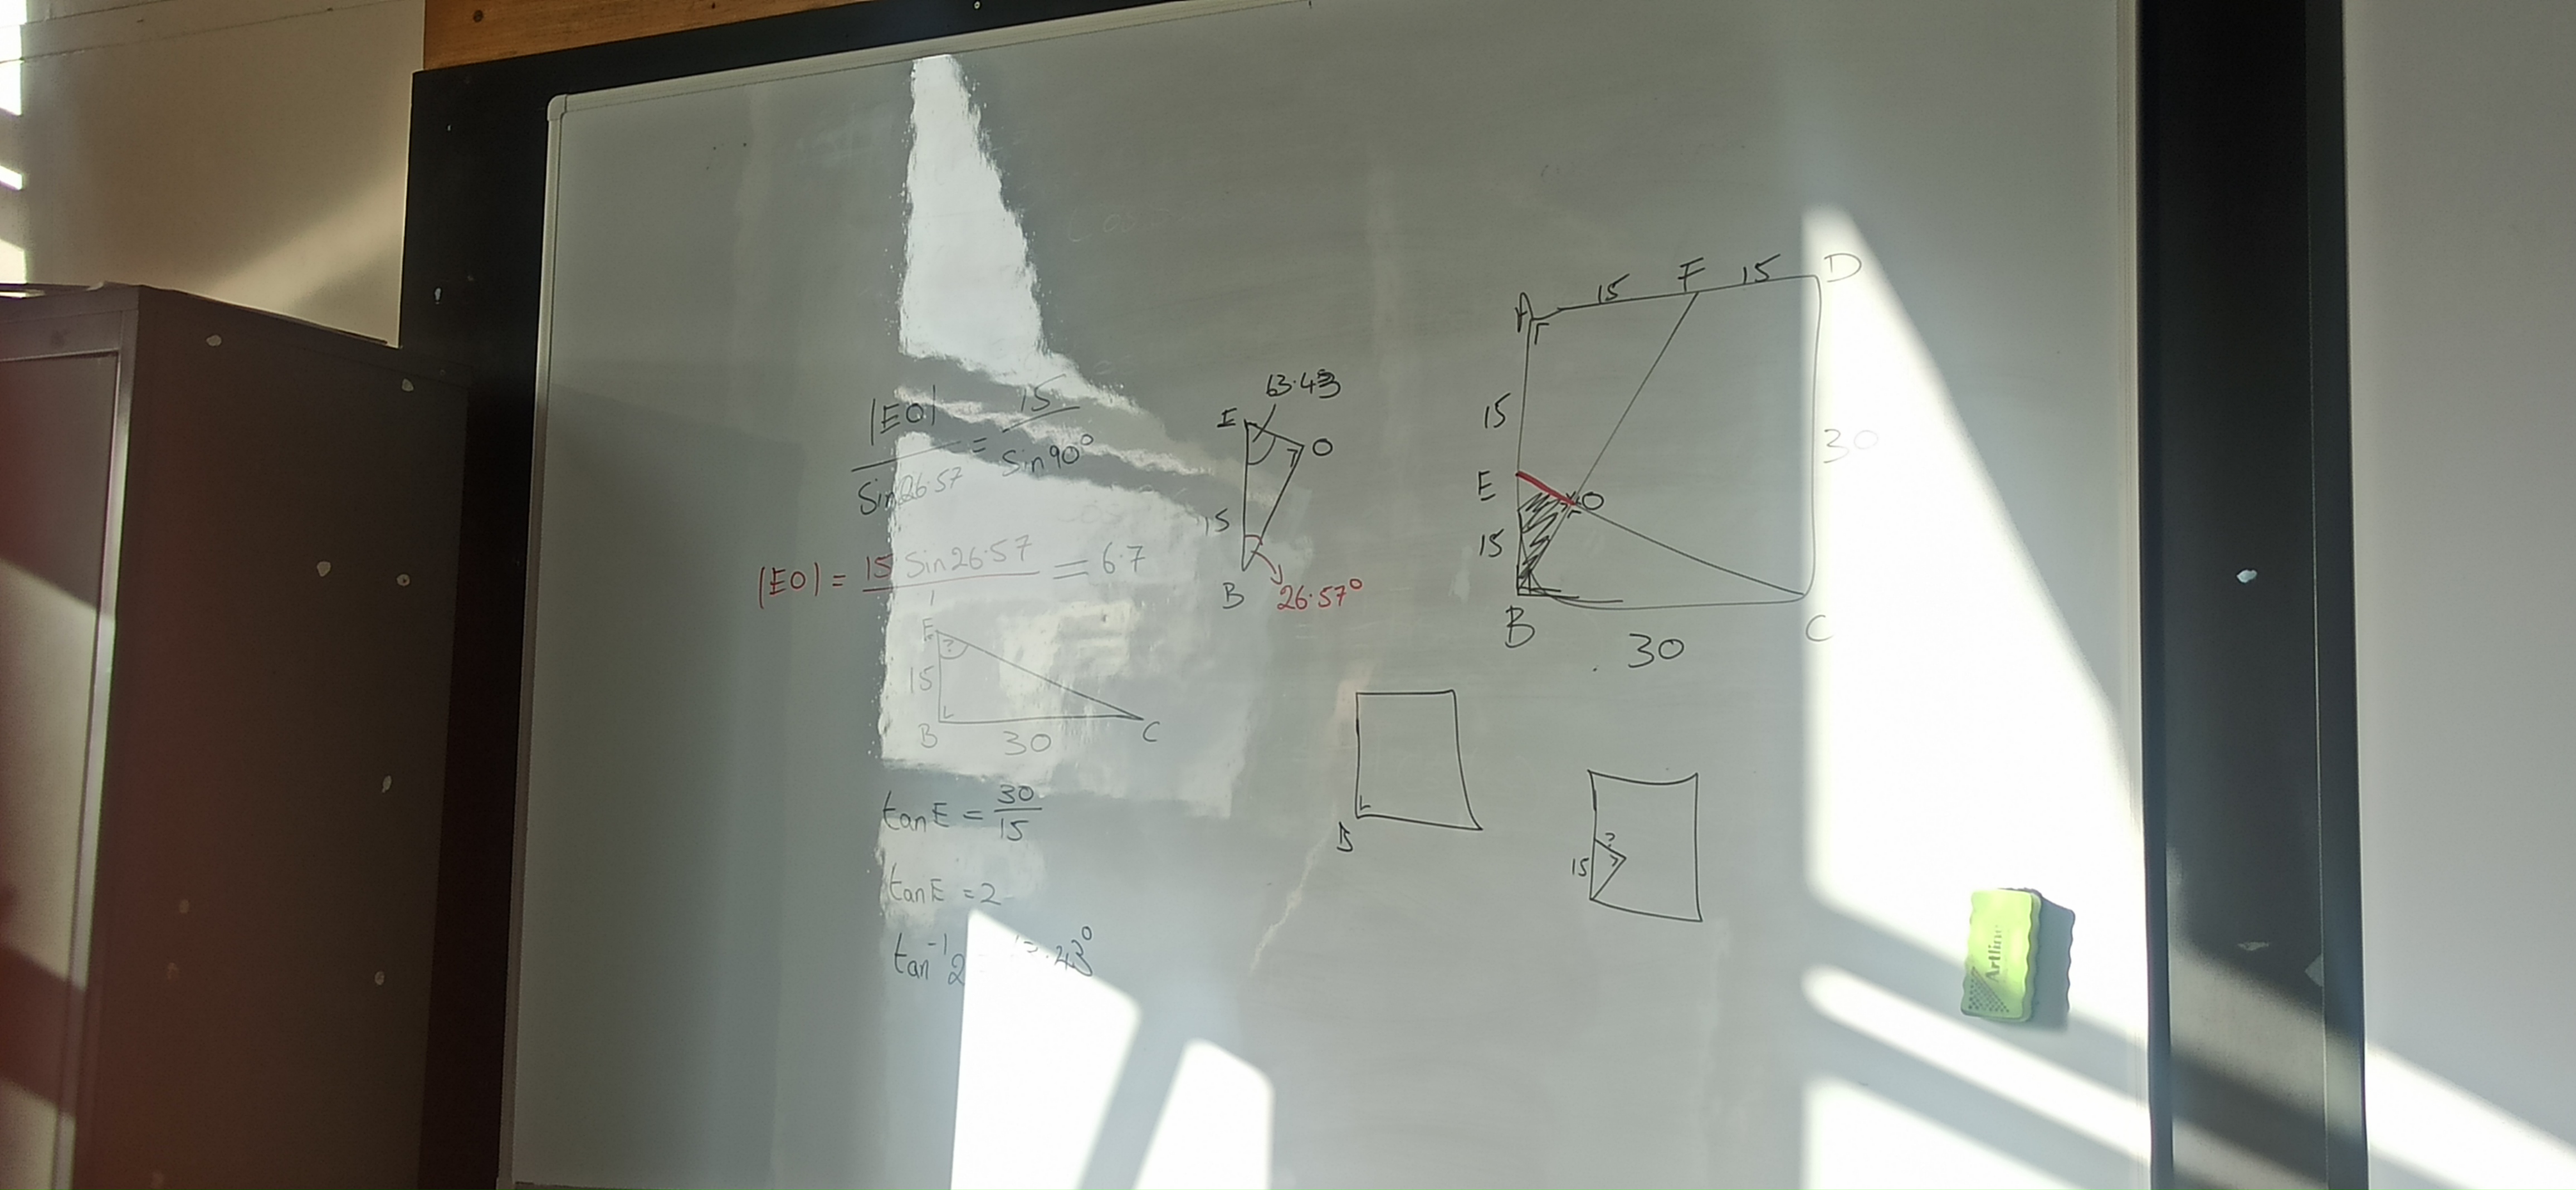 |EO| / Sin26.57 = 15 / Sin90°
|EO| = 15 Sin26.57 / 1 = 6.7
E
?
15
B
30
C
tanE = 30/15
tanE = 2
tan⁻¹2
.43°
63.43
E
O
15
B
26.57°
A
15
F
15
D
15
30
E
O
15
B
30
C
B
?
15
Artline